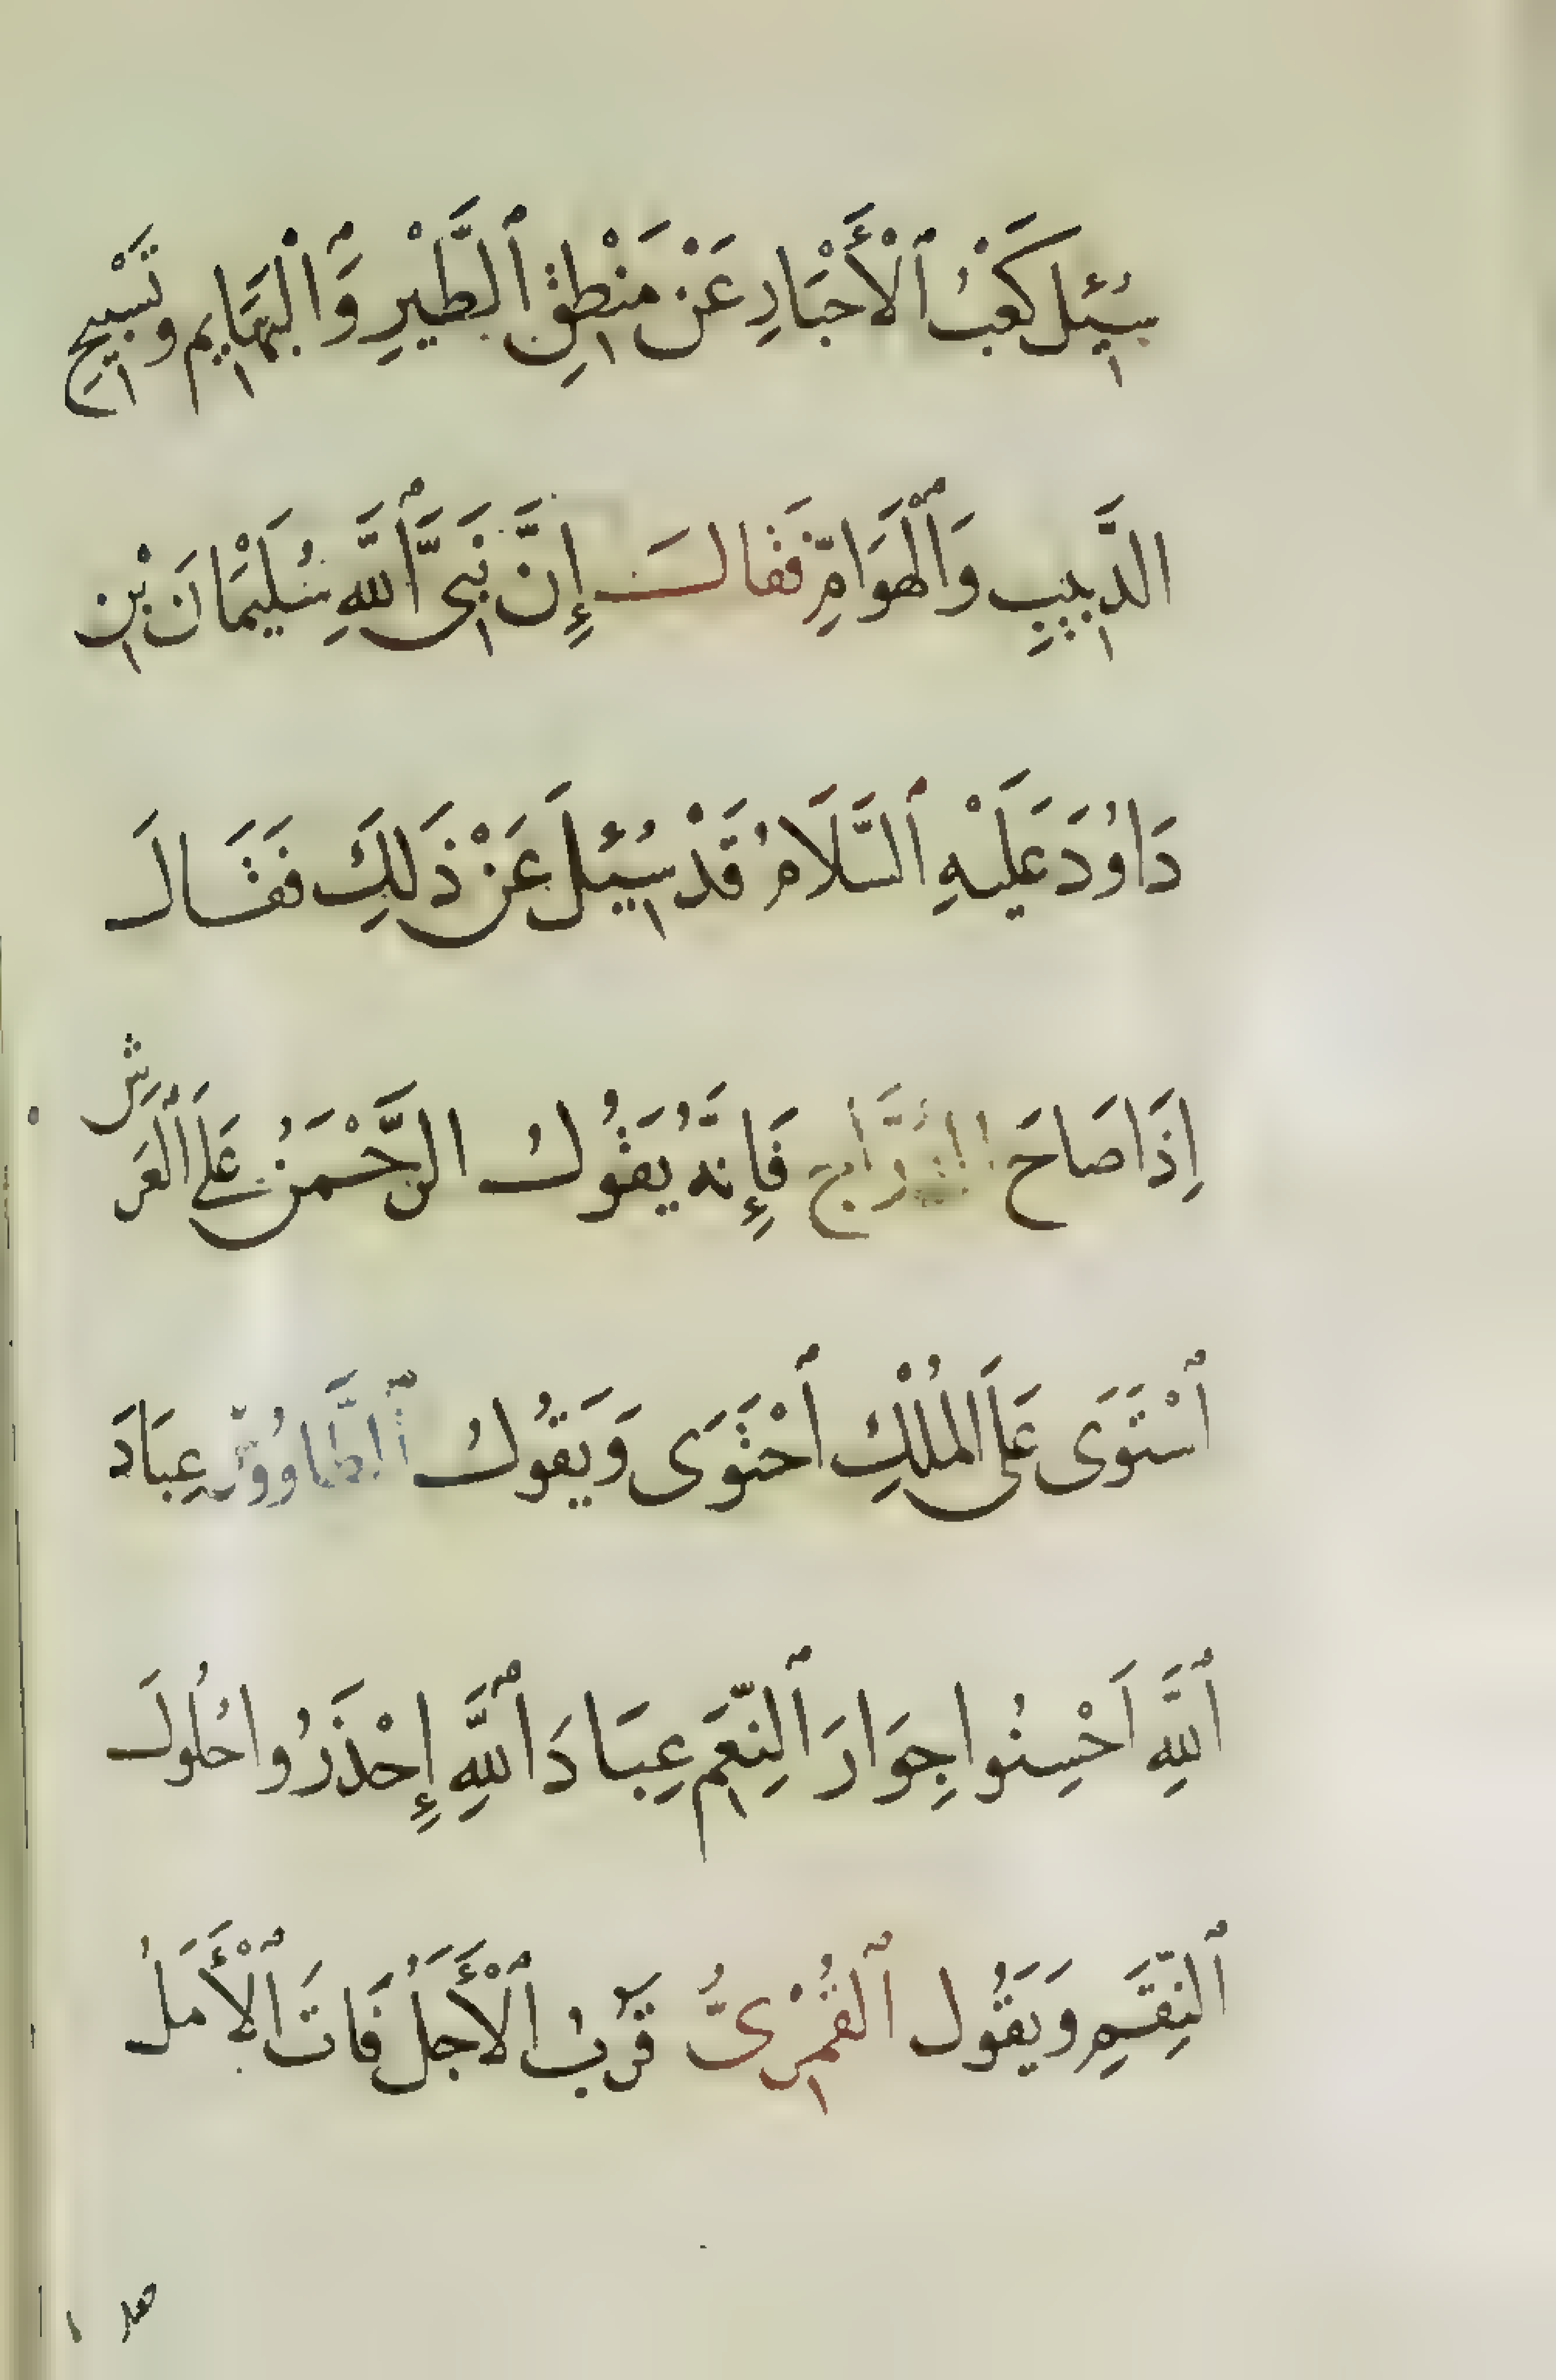 سُئِلَ كَعْبُ ٱلْأَحْبَارِ عَنْ مَنْطِقِ ٱلطَّيْرِ وَٱلْبَهَايِمِ وَتَسْبِيحِ
الدَّبِيبِ وَٱلْهَوَامِّ فَقَالَ إِنَّ نَبِىَّ ٱللَّهِ سُلَيْمَانَ بْنِ
دَاوُدَ عَلَيْهِ ٱلسَّلَامُ قَدْ سُئِلَ عَنْ ذَلِكَ فَقَالَ
إِذَا صَاحَ ٱلدُّرَّاج فَإِنَّهُ يَقُولُ الرَّحْمَنُ عَلَى ٱلْعَرْشِ
ٱسْتَوَى عَلَى الْمُلْكِ ٱحْتَوَى وَيَقُولُ ٱلطَّاوُوسُ عِبَادَ
ٱللَّهِ اَحْسِنُوا جِوَارَ ٱلنِّعَمِ عِبَادَ ٱللَّهِ إِحْذَرُوا حُلُولَ
ٱلنِّقَمِ وَيَقُول ٱلْقُمْرِىُّ قَرُبَ ٱلْأَجَلُ فَاتَ ٱلْأَمَلُ